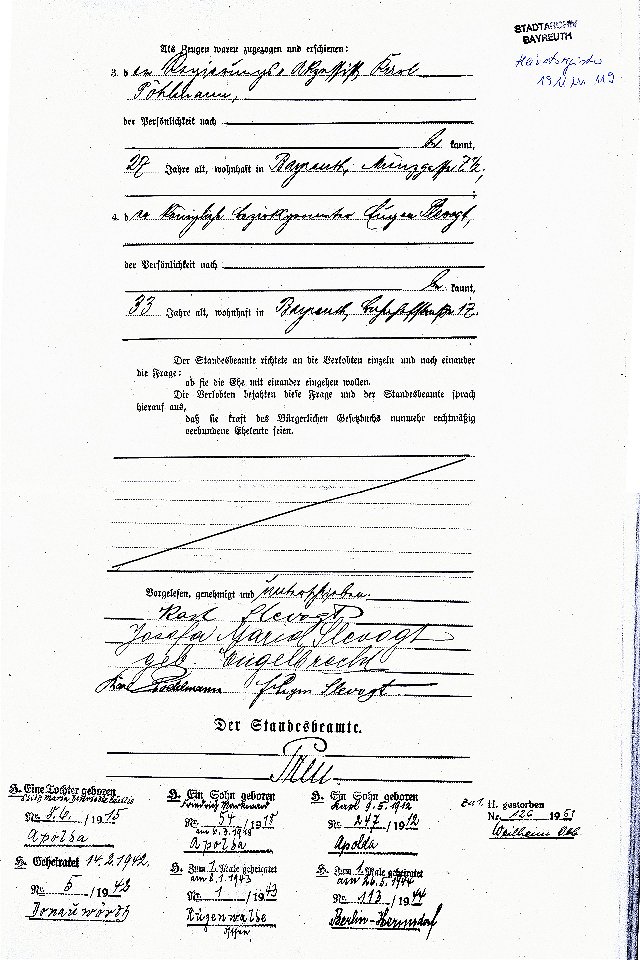 STADTARCHIV
BAYREUTH
Als Zeugen waren zugezogen und erschienen:
3. der Regierungs-Akzessist Karl
Pöhlmann,
der Persönlichkeit nach
be kannt,
27 Jahre alt, wohnhaft in Bayreuth, Münzgasse 7½;
4. der Königliche Bezirksamts Eugen Slevogt,
der Persönlichkeit nach
be kannt,
33 Jahre alt, wohnhaft in Bayreuth, Bahnhofstraße 12.
Der Standesbeamte richtete an die Verlobten einzeln und nach einander
die Frage:
ob sie die Ehe mit einander eingehen wollen.
Die Verlobten bejahten diese Frage und der Standesbeamte sprach
hierauf aus,
daß sie kraft des Bürgerlichen Gesetzbuchs nunmehr rechtmäßig
verbundene Eheleute seien.
Vorgelesen, genehmigt und unterschrieben.
Karl Slevogt
Josefa Maria Slevogt
geb Engelbrecht
Karl Poehlmann Eugen Slevogt
Der Standesbeamte.
H. Eine Tochter geboren
Maria
Nr. 56 / 1915
Apolda
H. Geheiratet 14.2.1942.
Nr. 5 / 1942
Donauwörth
H. Ein Sohn geboren
Friedrich
Nr. 54 / 1918
am 2.3.1918
Apolda
H. Zum 1. Male geheiratet
am 2.1.1943
Nr. 1 / 1943
Rügenwalde
H. Ein Sohn geboren
Karl 9.5.1912
Nr. 247 / 1912
Apolda
H. Zum 1. Male geheiratet
am 26.5.1944
Nr. 113 / 1944
Berlin-Hermsdorf
Zu 1. H. gestorben
Nr. 126 1951
Weilheim Obb